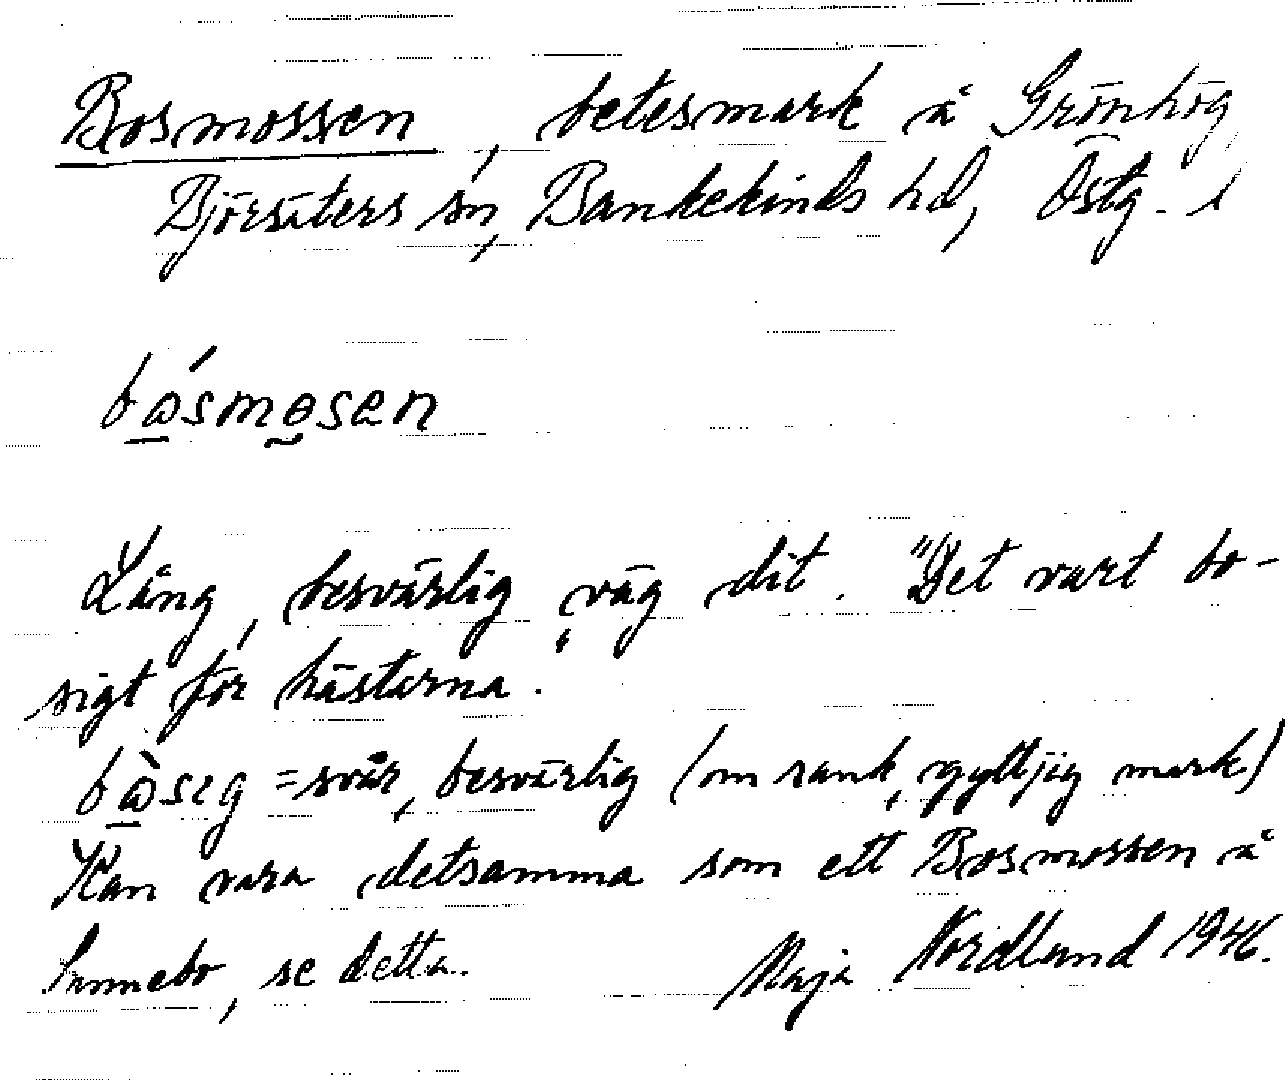 Bosmossen, betesmark å Grönhög,
Björsäters sn, Bankekinds hd, Östg. l
bo̲smosen
Lång, besvärlig väg dit. "Det vart bo-
sigt för hästarna."
bo̲seg = svår, besvärlig (om sank, gyttjig mark)
Kan vara detsamma som ett Bosmossen å
Sunnebo, se detta. Maja Nordlund 1946.